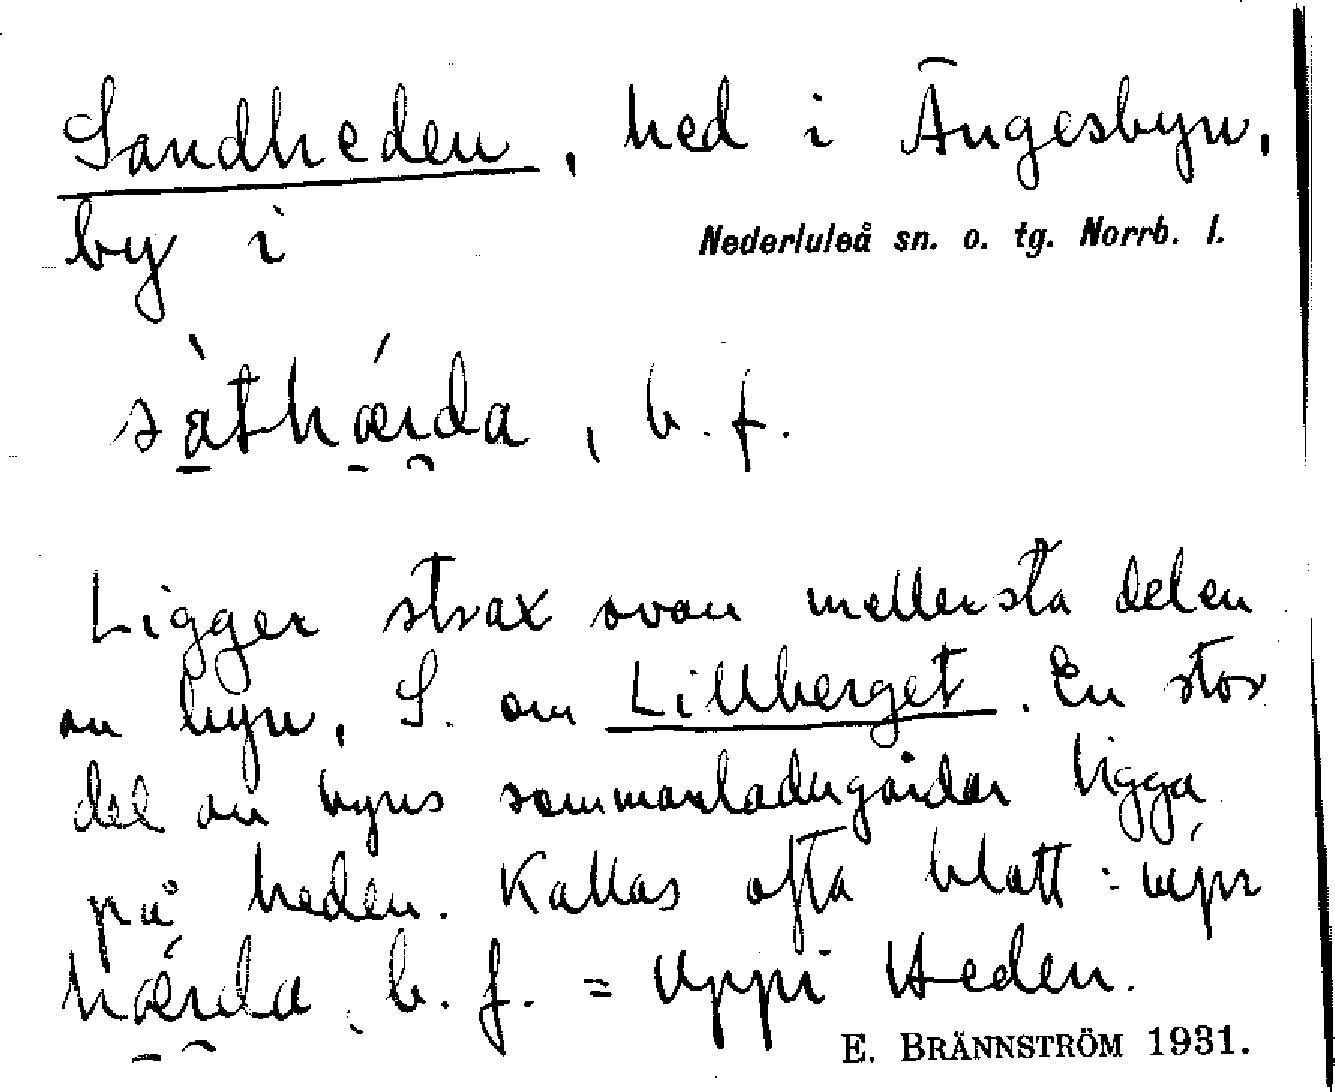 Sandheden, hed i Ängesbyn,
by i Nederluleå sn. o. tg. Norrb. l.
sàthǽɪda, b. f.
Ligger strax ovan mellersta delen
av byn, S. om Lillberget. En stor
del av byns sommarladugårdar ligga
på heden. Kallas ofta blott:
hǽɪda, b. f. = Uppi Heden.
E. BRÄNNSTRÖM 1931.